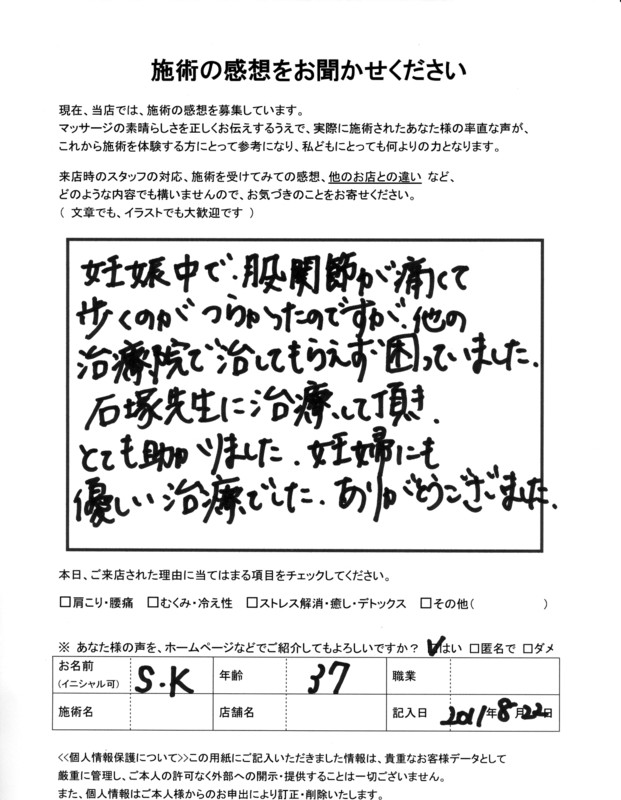 施術の感想をお聞かせください
現在、当店では、施術の感想を募集しています。
マッサージの素晴らしさを正しくお伝えするうえで、実際に施術されたあなた様の率直な声が、
これから施術を体験する方にとって参考になり、私どもにとっても何よりの力となります。
来店時のスタッフの対応、施術を受けてみての感想、他のお店との違い など、
どのような内容でも構いませんので、お気づきのことをお寄せください。
( 文章でも、イラストでも大歓迎です )
妊娠中で、股関節が痛くて
歩くのがつらかったのですが、他の
治療院で治してもらえず困っていました。
石塚先生に治療して頂き、
とても助かりました。妊婦にも
優しい治療でした。ありがとうございました。
本日、ご来店された理由に当てはまる項目をチェックしてください。
□肩こり・腰痛 □むくみ・冷え性 □ストレス解消・癒し・デトックス □その他( )
※ あなた様の声を、ホームページなどでご紹介してもよろしいですか? ☑はい □匿名で □ダメ
お名前 (イニシャル可) S.K 年齢 37 職業
施術名 店舗名 記入日 2011年8月22日
<<個人情報保護について>>この用紙にご記入いただきました情報は、貴重なお客様データとして
厳重に管理し、ご本人の許可なく外部への開示・提供することは一切ございません。
また、個人情報はご本人様からのお申出により訂正・削除いたします。